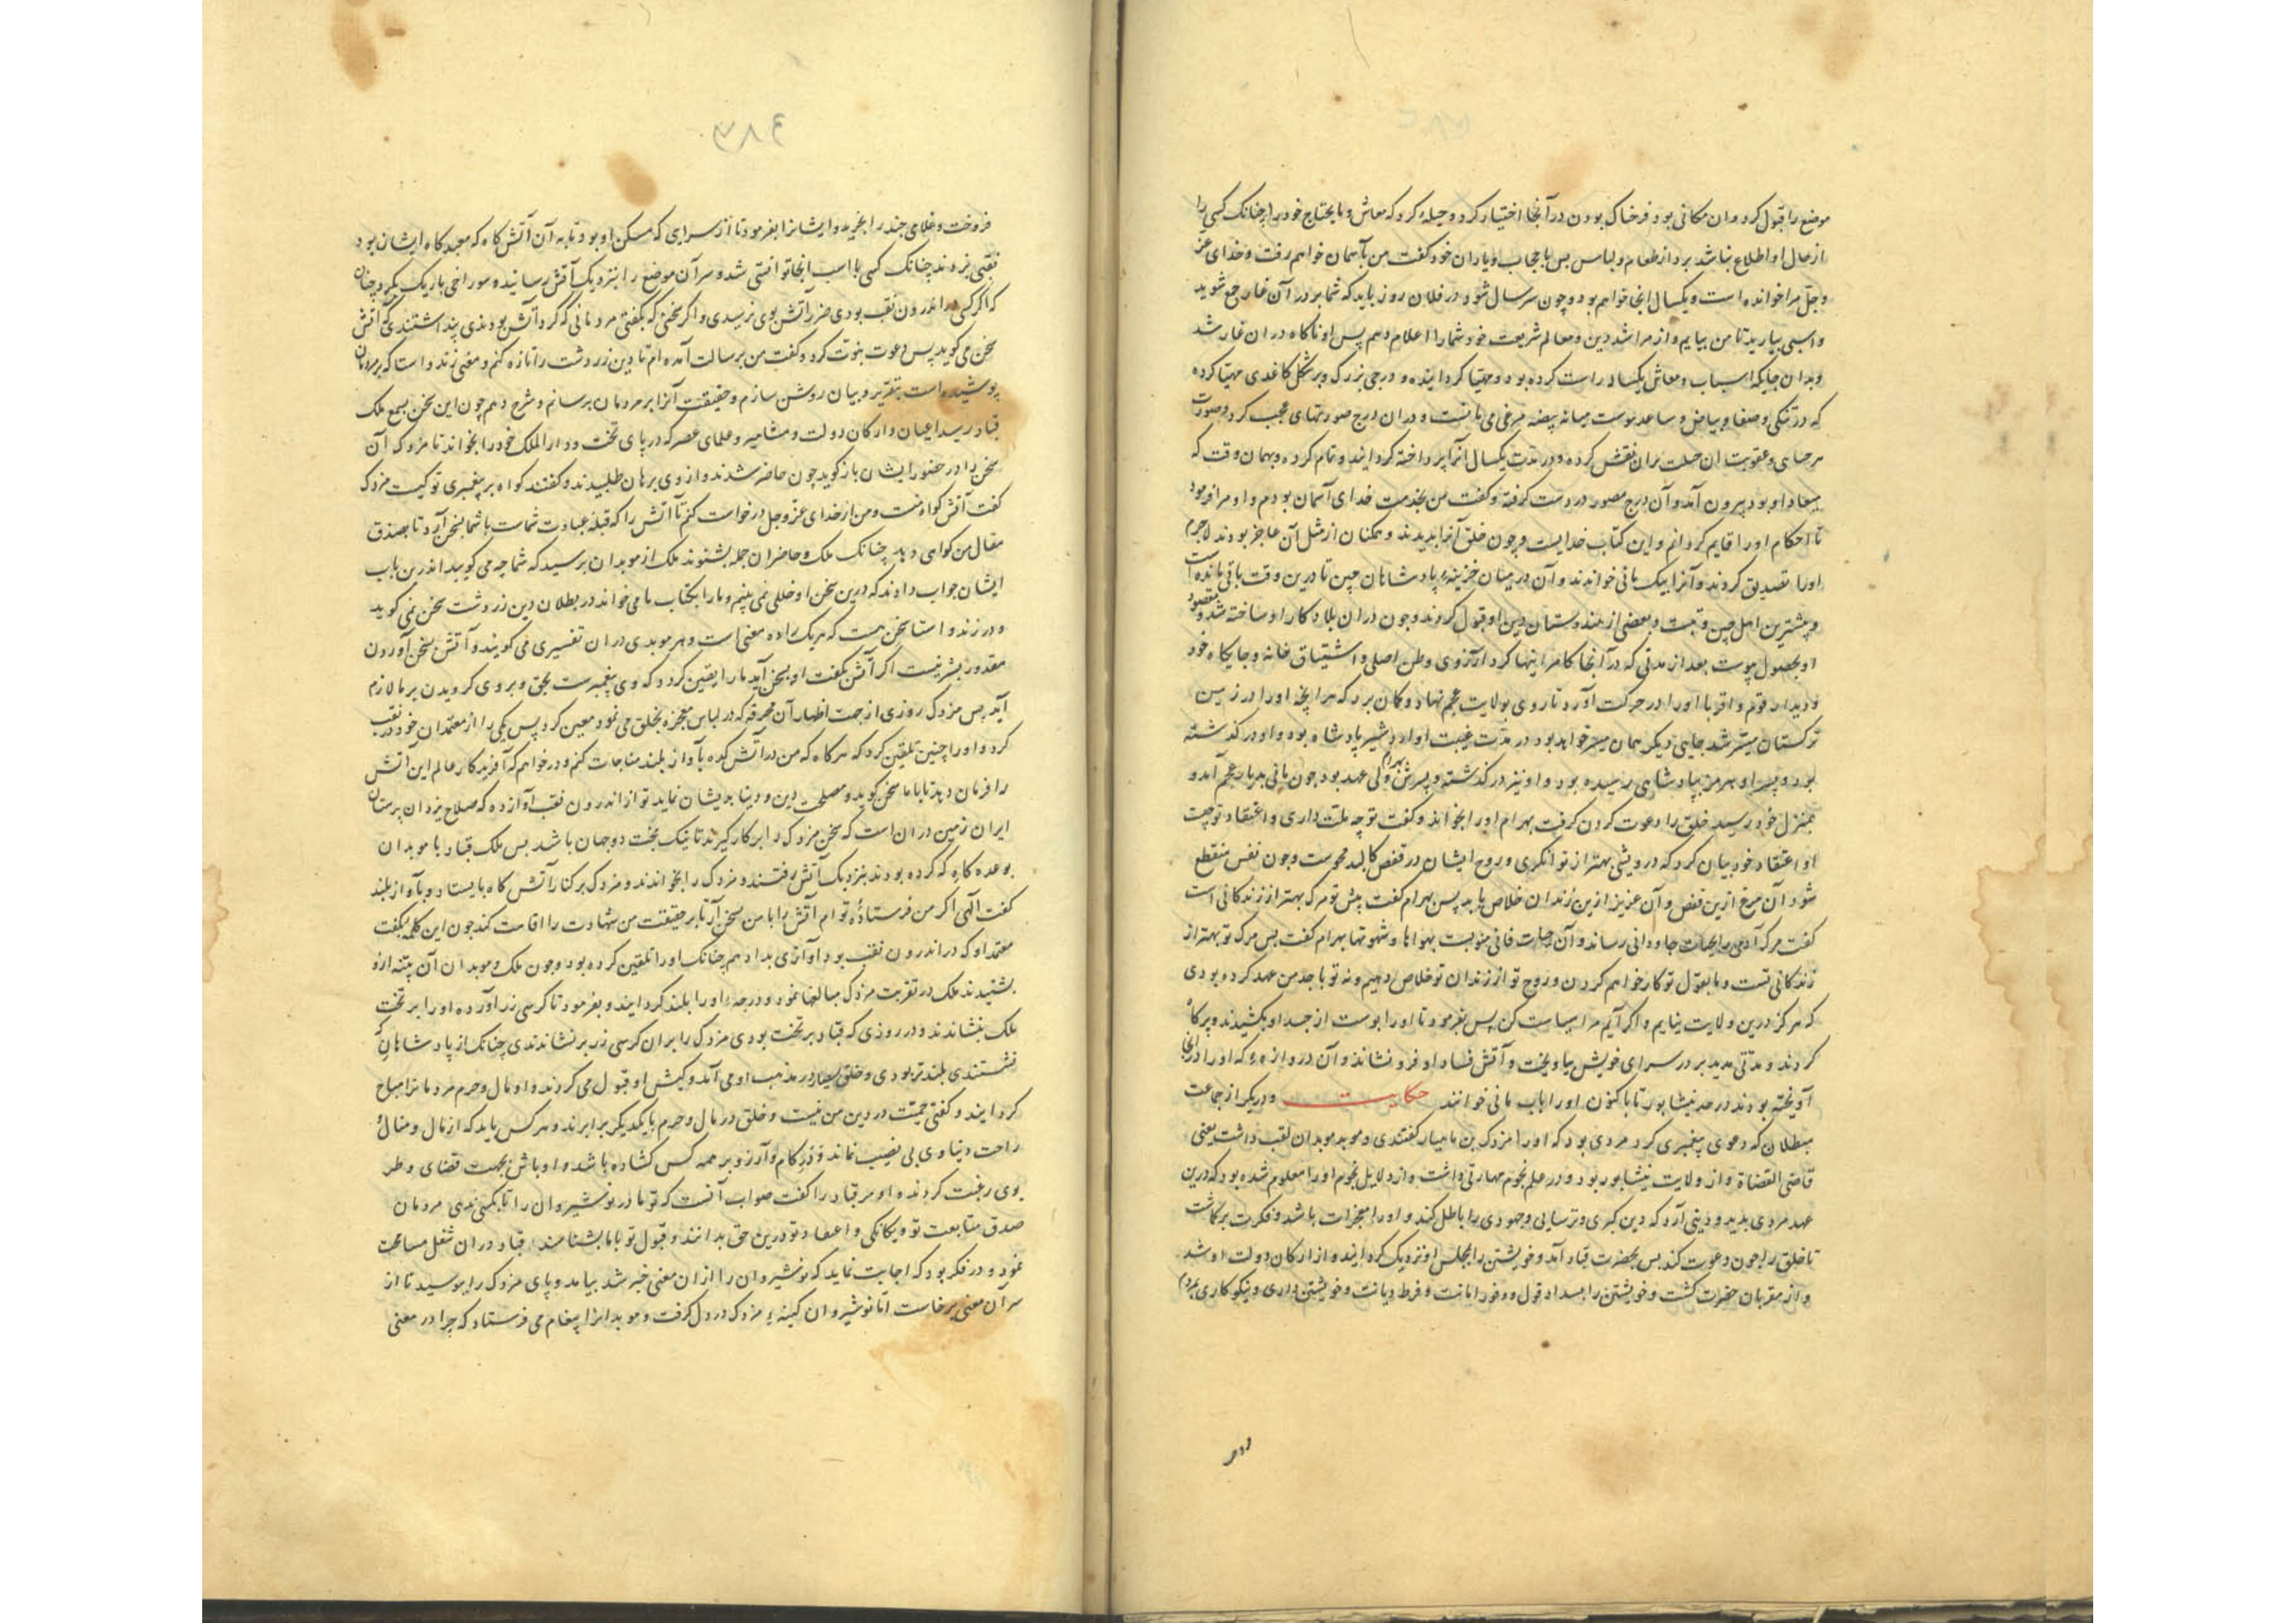 موضع را قبول کرد و ان مکانی بود فرخناک بودن در آنجا اختیار کرد و حیلهٔ کرد که معاش و مایحتاج خود را چنانک کسی را
از حال او اطلاع نباشد برد از طعام و لباس پس با حجاب و یاران خود گفت من بآسمان خواهم رفت و خدای عز
و جل مرا خوانده است و یکسال انجا خواهم بود و چون سر سال شود در فلان روز باید که شما بر در آن غار جمع شوید
و اسبی بیارید تا من بیایم و از مراشد دین و معالم شریعت خود شما را اعلام دهم پس او ناکاه در ان غار شد
و بدان جایکه اسباب و معاش یکساله راست کرده بود و مهیا کردانیده و درجی بزرک و بر شکل کاغدی مهیا کرده
که در تنکی و صفا و بیاض و ساعد پوست میانه بیضه مرغی می مانست و در ان درج صورتهای عجب کرد و صورت
هر جنایت و عقوبت ان خصلت بران نقش کرده و در مدت یکسال آنرا پرداخته کردانید و تمام کرده و بهمان وقت که
میعاد او بود بیرون آمد و آن درج مصور در دست کرفته و کفت من بخدمت خدای آسمان بودم و او مرا فرمود
تا احکام او را قایم کردانم و این کتاب خدایست و چون خلق آنرا بدیدند و همکنان از مثل آن عاجز بودند لاجرم
او را تصدیق کردند و آنرا بیک مانی خواندند و آن در میان خزینهٔ پادشاهان چین تا درین وقت باقی مانده است
و بیشترین اهل چین و تبت و بعضی از هندوستان دین او قبول کردند و چون دران بلاد کار او ساخته شد و مقصود
او بحصول پیوست بعد از مدتی که در آنجا کامرانیها کرد آرزوی وطن اصلی و اشتیاق خانه و جایکاه خود
و دیدار قوم و اقربا او را در حرکت آورد تا روی بولایت عجم نهاد و کمان برد که هر انچه او را در زمین
ترکستان میسر شد جایی دیکر همان میسر خواهد بود در مدت غیبت او اردشیر پادشاه بوده و او در کذشته
بود و پسر او هرمز بپادشاهی رسیده بود و او نیز در کذشته و پسرش بهرام ولی عهد بود چون مانی بدیار عجم آمد و
بمنزل خود رسید خلق را دعوت کردن کرفت بهرام او را بخواند و کفت تو چه ملت داری و اعتقاد تو چیست
او اعتقاد خود بیان کرد که درویشی بهتر از توانکری و روح ایشان در قفص کالبد محبوست و چون نفس منقطع
شود آن مرغ ازین قفص و آن عزیز ازین زندان خلاص یابد پس بهرام کفت پیش تو مرک بهتر از زندکانی است
کفت مرک آدمی را بحیات جاودانی رساند و آن حیات فانی منوبست بهواها و شهوتها بهرام کفت پس مرک تو بهتر از
زندکانی تست و ما بقول تو کار خواهم کردن و روح تو از زندان تو خلاص دهیم و نه تو با جد من عهد کرده بودی
که هرکز درین ولایت نیایم و اکر آیم مرا سیاست کن پس بفرمود تا او را پوست از جسد او بکشیدند و پر کاه
کردند و مدتی مدید بر در سرای خویش بیاویخت و آتش فساد او فرو نشاند و آن دروازهٔ که او را در انجا
آویخته بودند در حد نیشابور تا باکنون او را باب مانی خوانند حکایت و دیکر از جماعت
مبطلان که دعوی پیغمبری کرد مردی بود که او را مزدک بن بامیار کفتندی و موبد موبدان لقب داشت یعنی
قاضی القضاة و از ولایت نیشابور بود و در علم نجوم مهارتی داشت و از دلایل نجوم او را معلوم شده بود که درین
عهد مردی پدید و دینی آرد که دین کبری و ترسایی و جهودی را باطل کند و او را معجزات باشد و فکرت بر کماشت
تا خلق را چون دعوت کند پس بحضرت قباد آمد و خویشتن را بمجلس او نزدیک کردانید و از ارکان دولت او شد
و از مقربان حضرت کشت و خویشتن را بسداد قول و وفور امانت و فرط دیانت و خویشتن داری و نیکو کاری بمردم
فروخت و غلامی چند را بخرید و ایشانرا بفرمود تا از سرایی که مسکن او بود تا به آن آتش کاه که معبد کاه ایشان بود
نقبی بزدند چنانک کسی با اسب انجا توانستی شد و سر آن موضع را بنزدیک آتش رسانید و سوراخی باریک بکرد چنان
که اکر کسی در اندرون نقب بودی ضرر آتش بوی نرسیدی و اکر سخنی که بکفتی مردمانی که کرد آتش بودندی پنداشتندی که آتش
سخن می کوید پس دعوت نبوت کرد و کفت من برسالت آمده ام تا دین زردشت را تازه کنم و معنی زند و استا که بر مردمان
پوشیده است بتقریر و بیان روشن سازم و حقیقت آنرا بر مردمان برسانم و شرح دهم چون این سخن بسمع ملک
قباد رسید اعیان و ارکان دولت و مشاهیر و علمای عصر که در پای تخت و دار الملک خود را بخواند تا مزدک آن
سخن را در حضور ایشان باز کوید چون حاضر شدند و از وی برهان طلبیدند و کفتند کواه بر پیغمبری تو کیست مزدک
کفت آتش کواه منست و من از خدای عز و جل درخواست کنم تا آتش را که قبله عبادت شماست با شما بسخن آرد تا بصدق
مقال من کواهی دهد چنانک ملک و حاضران جمله بشنوند ملک از موبدان پرسید که شما چه می کویید اندرین باب
ایشان جواب دادند که درین سخن او خللی نمی بینیم و ما را بکتاب ما می خواند در بطلان دین زردشت سخن نمی کوید
و در زند و استا سخن هست که هر یک را ده معنی است و هر موبدی دران تفسیری می کویند و آتش بسخن آوردن
مقدور بشر نیست اکر آتش بکفت او بسخن آید ما را یقین کردد که وی پیغمبرست بحق و بر وی کرویدن بر ما لازم
آید پس مزدک روزی از جهت اظهار آن مخرقه که در لباس معجزه بخلق می نمود معین کرد پس یکی را از معتمدان خود در نقب
کرد و او را چنین تلقین کرد که هر کاه که من در آتش کده باواز بلند مناجات کنم و درخواهم که آفریدکار عالم این آتش
را فرمان دهد تا با ما سخن کوید و مصلحت دین و دینا بدیشان نماید تو از اندرون نقب آواز ده که صلاح یزدان پرستان
ایران زمین دران است که سخن مزدک را بر کار کیرند تا نیک بخت دو جهان باشند پس ملک قباد با موبدان
بوعده کاه که کرده بودند بنزدیک آتش رفتند و مزدک را بخواندند و مزدک بر کنار آتش کاه بایستاد و بآواز بلند
کفت الهی اکر من فرستادهٔ تو ام آتش را با من بسخن آر تا بر حقیقت من شهادت را اقامت کند چون این کلمه بکفت
معتمد او که در اندرون نقب بود آوازی بداد هم چنانک او را تلقین کرده بود و چون ملک و موبدان آن بینه ازو
بشنیدند ملک در تقریب مزدک مبالغها نمود و درجهٔ او را بلند کردانید و بفرمود تا کرسی زر آورده او را بر تخت
ملک بنشاندند و در روزی که قباد بر تخت بودی مزدک را بران کرسی زر بر نشاندندی چنانک از پادشاهان که
نشستندی بلندتر بودی و خلق بسیار در مذهب او می آمدند و کیش او قبول می کردند و او مال و حرم مردمانرا مباح
کردانید و کفتی حمیت در دین من نیست و خلق در مال و حرم با یکدیکر برابرند و هر کس باید که از مال و منال
راحت دیناوی بی نصیب نماند و در کام و آرزو بر همه کس کشاده باشد و اوباش بجهت قضای وطر
بوی رغبت کردند و او مر قباد را کفت صواب آنست که تو مادر نوشیروان را تا بکسی ندهی مردمان
صدق متابعت تو و یکانکی و اعتقاد تو درین حق بدانند و قبول تو با ما بشناسند قباد دران شغل مسامحت
نمود و در فکر بود که اجابت نماید که نوشیروان را از ان معنی خبر شد بیامد و پای مزدک را ببوسید تا از
سر آن معنی برخاست اما نوشیروان کینهٔ مزدک در دل کرفت و موبدانرا پیغام می فرستاد که چرا در معنی